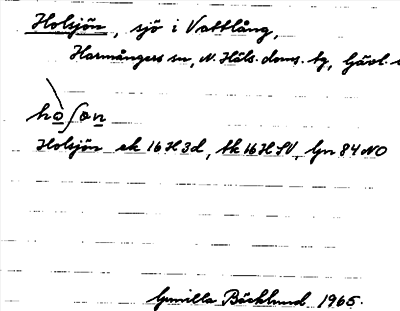 Holsjön, sjö i Vattlång,
Harmångers sn, N. Häls. doms. tg, Gävl.
hoʃön
Holsjön ek 16H3d, tk 16HSV, Gn 84NO
Gunilla Bäcklund 1965.